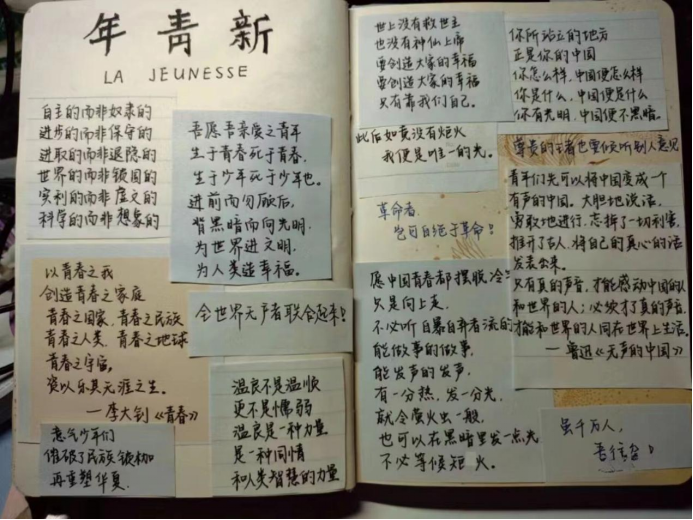 新青年
LA JEUNESSE
自主的而非奴隶的
进步的而非保守的
进取的而非退隐的
世界的而非锁国的
实利的而非虚文的
科学的而非想象的
吾愿吾亲爱之青年
生于青春死于青春
生于少年死于少年也。
进前而勿顾后，
背黑暗而向光明，
为世界进文明，
为人类造幸福。
以青春之我
创造青春之家庭
青春之国家，青春之民族
青春之人类，青春之地球
青春之宇宙，
资以乐其无涯之生。
——李大钊《青春》
全世界无产者联合起来！
意气少年们
再重塑华夏.
温良不是温顺
更不是懦弱
温良是一种力量
是一种同情
和人类智慧的力量
世上没有救世主
也没有神仙上帝
要创造大家的幸福
要创造大家的幸福
只有靠我们自己。
你所站立的地方
正是你的中国
你怎么样，中国便怎么样
你是什么，中国便是什么
你有光明，中国便不黑暗。
此后如竟没有炬火
我便是唯一的光。
革命者
也可自绝于革命！
尊贵的王者也要倾听别人意见
青年们先可以将中国变成一个
有声的中国。大胆地说话，
勇敢地进行，忘掉了一切利害，
推开了古人，将自己的真心的话
发表出来。
只有真的声音，才能感动中国的人
和世界的人；必须有了真的声音，
才能和世界的人同在世界上生活。
——鲁迅《无声的中国》
愿中国青春都摆脱冷
只是向上走，
不必听自暴自弃者流的
能做事的做事，
能发声的发声，
有一分热，发一分光，
就令萤火虫一般，
也可以在黑暗里发一点光
不必等候炬火。
虽千万人，
吾往矣！